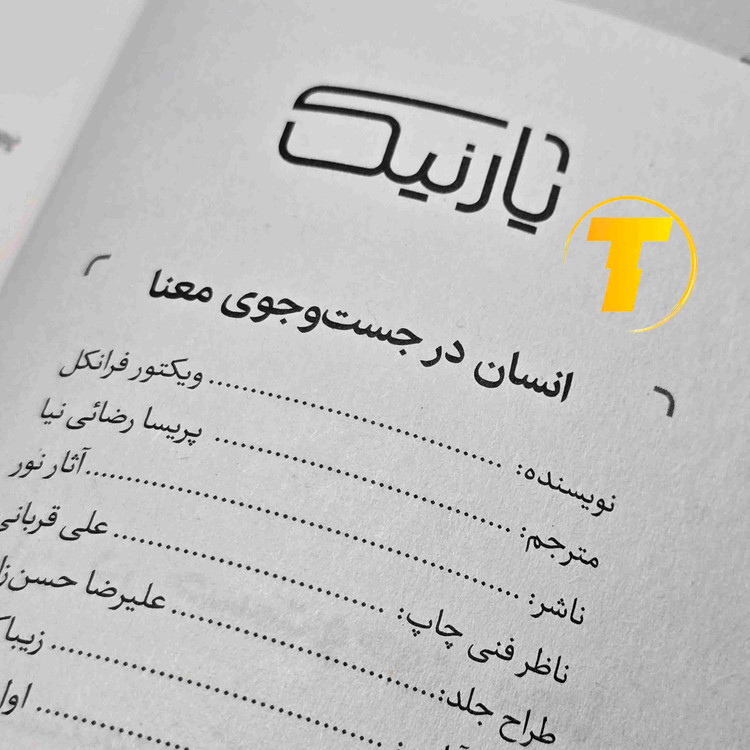 نارنیک
T
انسان در جست‌وجوی معنا
نویسنده: ........................................ ویکتور فرانکل
مترجم: ........................................ پریسا رضائی نیا
ناشر: ........................................ آثار نور
ناظر فنی چاپ: ........................................ علی قربانی
طراح جلد: ........................................ علیرضا
اول